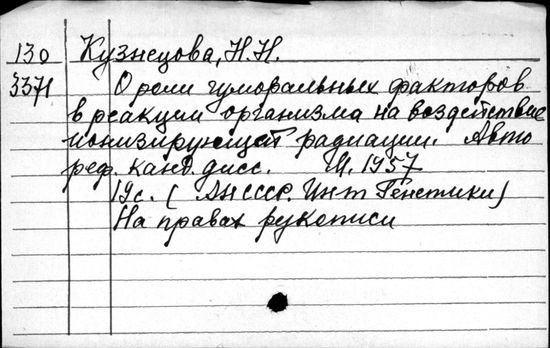 130 Кузнецова, Н.Н.
3371 О роли гуморальных факторов
в реакции организма на воздействие
ионизирующей радиации. Авто
реф. канд. дисс. М. 1957
19с. (АН СССР. Инт Генетики)
На правах рукописи